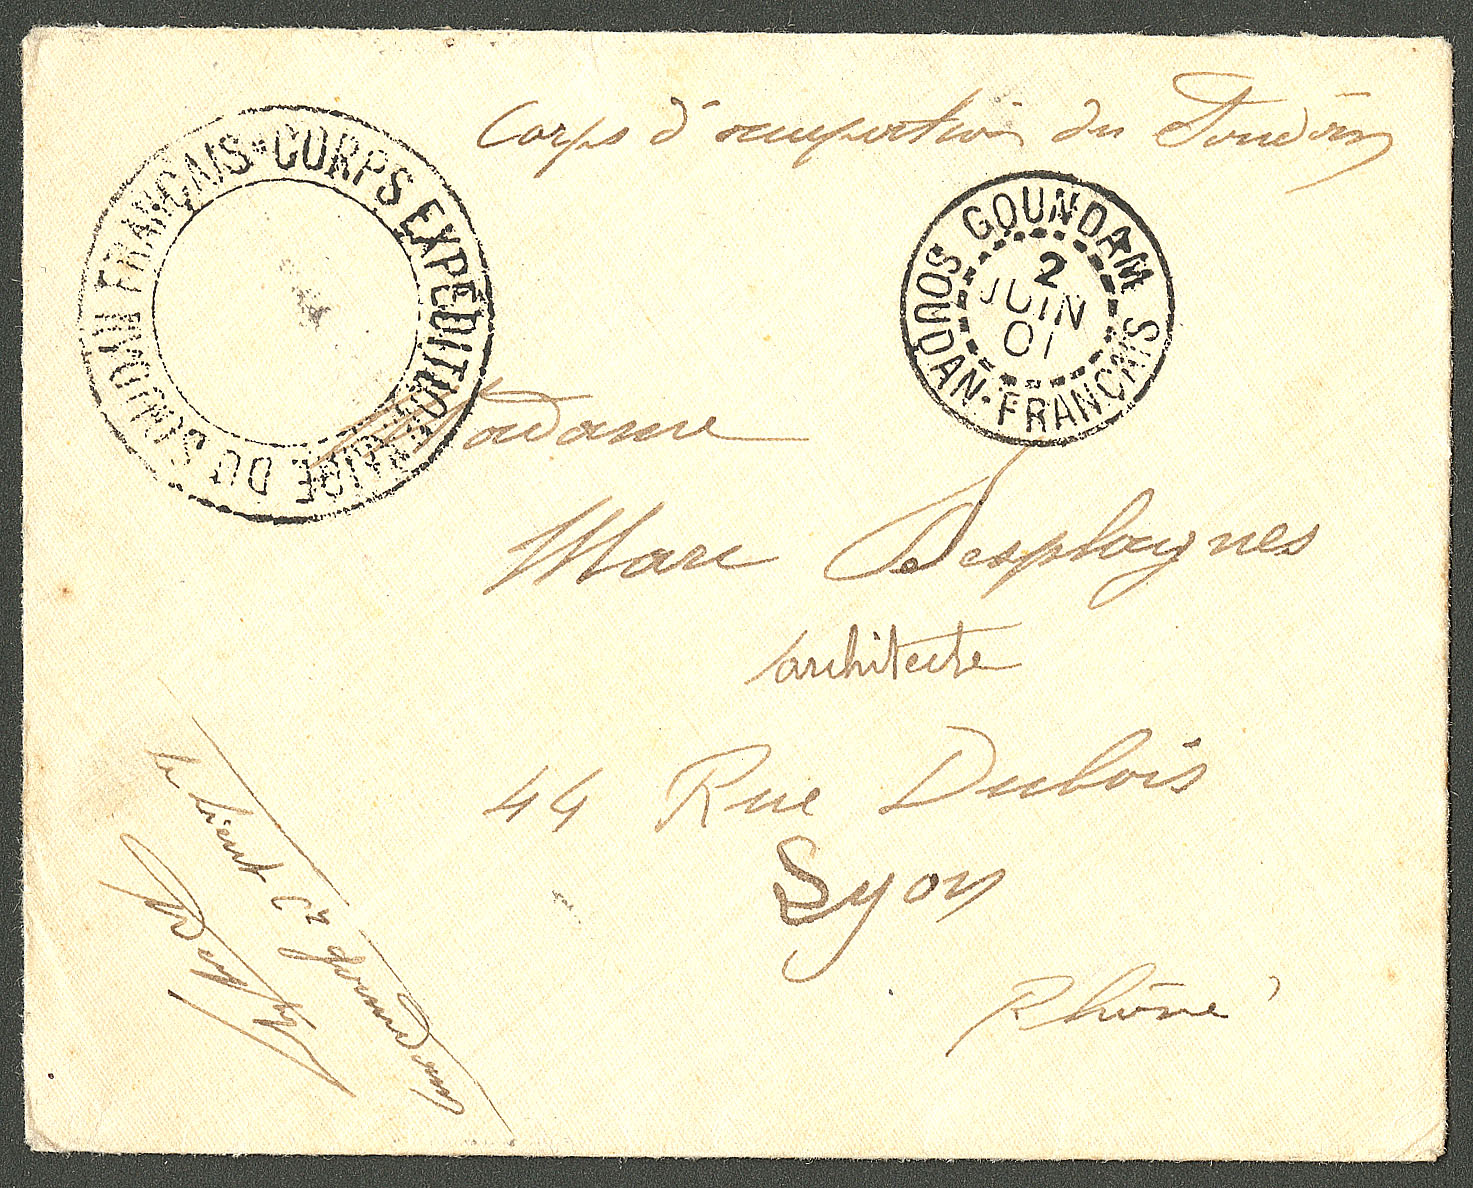 Corps d'occupation du Soudan
CORPS EXPÉDITIONNAIRE DU SOUDAN FRANÇAIS
GOUNDAM
2
JUIN
01
SOUDAN-FRANÇAIS
Madame
Marc Desplagnes
architecte
44 Rue Dubois
Lyon
Rhône
le Lieut Ct Goundam